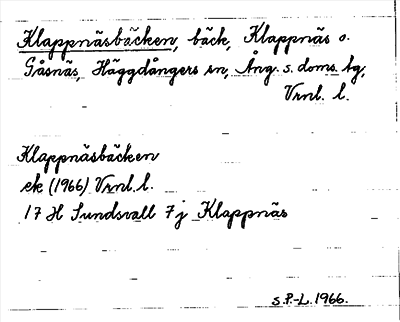 Klappnäsbäcken, bäck, Klappnäs o.
Gåsnäs, Häggdångers sn, Ång. s. doms. tg,
Vrnl. l.
Klappnäsbäcken
ek (1966) Vrnl. l.
17 H Sundsvall 7j Klappnäs
S.P.-L. 1966.